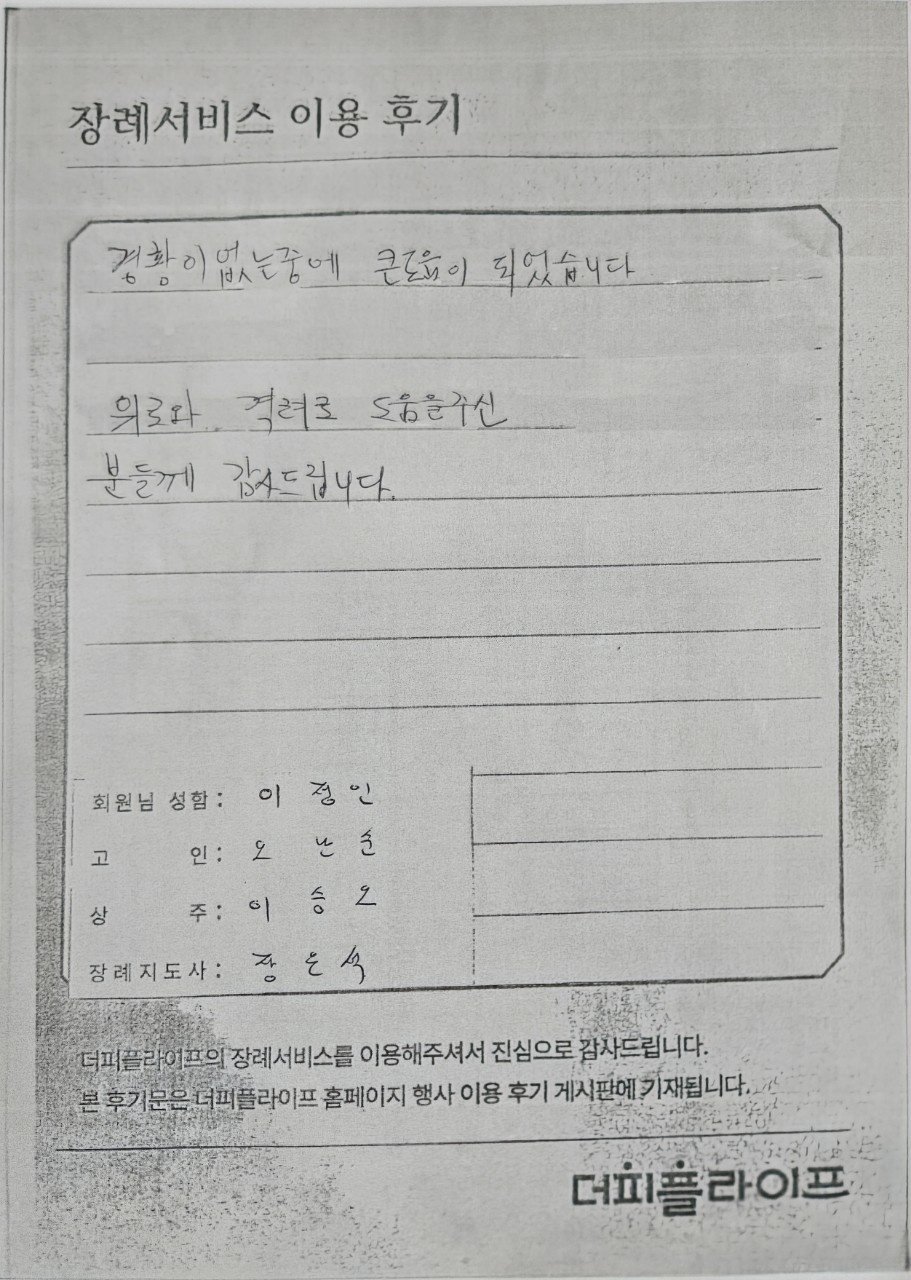 장례서비스 이용 후기
경황이없는중에 큰도움이 되었습니다
위로와 격려로 도움을주신
분들께 감사드립니다.
회원님 성함: 이 정 인
고 인: 오 난 순
상 주: 이 승 오
장례지도사: 장 은 석
더피플라이프의 장례서비스를 이용해주셔서 진심으로 감사드립니다.
본 후기문은 더피플라이프 홈페이지 행사 이용 후기 게시판에 기재됩니다.
더피플라이프